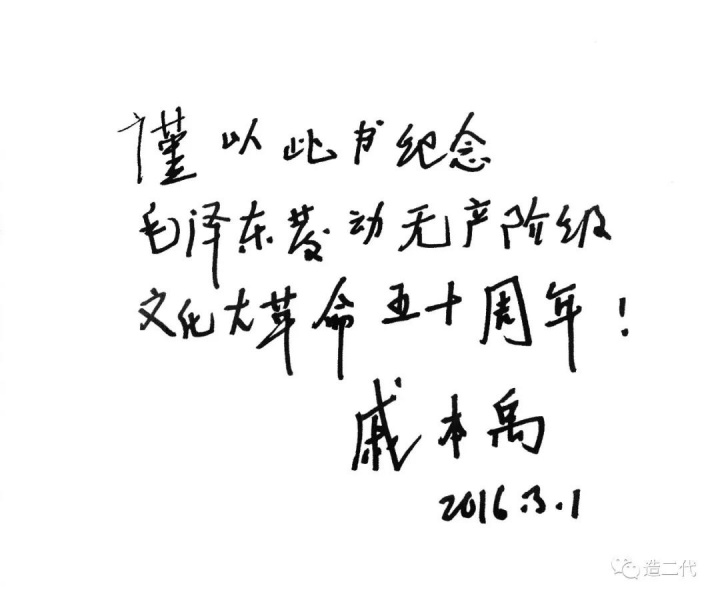 谨以此书纪念
毛泽东发动无产阶级
文化大革命五十周年！
戚本禹
2016.3.1
造二代